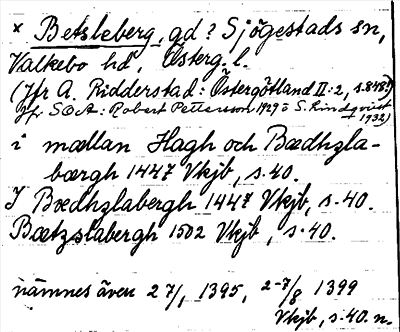 × Betsleberg, gd? Sjögestads sn,
Valkebo hd, Österg. l.
(Jfr A. Ridderstad: Östergötland II:2, s. 848!)
Jfr SOA: Robert Pettersson 1929 o S. Lindqvist 1932)
i mællan Hagh och Bædhzla-
bærgh 1447 Vkjb, s. 40.
J Bædhzlabergh 1447 Vkjb, s. 40.
Bætzslabergh 1502 Vkjb, s. 40.
nämnes även 27/, 1395, 2-7/8 1399
Vkjb, s. 40. n.